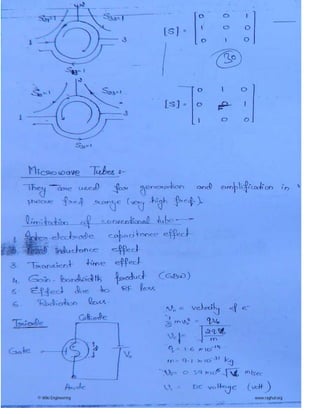 2
S21=1
S32=1
1
3
S13=1
[S] =
0 0 1
1 0 0
0 1 0
30
2
S12=1
S23=1
1
3
S31=1
[S] =
0 1 0
0 0 1
1 0 0
Microwave Tubes :-
They are used for generation and amplification in
μwave freq range (very high freq.).
Limitation of conventional tube
1. Inter electrode capacitance effect
2. Lead Inductance effect
3. Transient time effect
4. Gain-bandwidth product (GBW)
5. Effect due to RF loss
6. Radiation loss.
Triode
Cathode
Gate
Anode
V₀
V₀ = velocity of e⁻
q = 1.6 × 10⁻¹⁹
m = 9.1 × 10⁻³¹ kg
V₀ = DC voltage (volt)
© Wiki Engineering
www.raghul.org